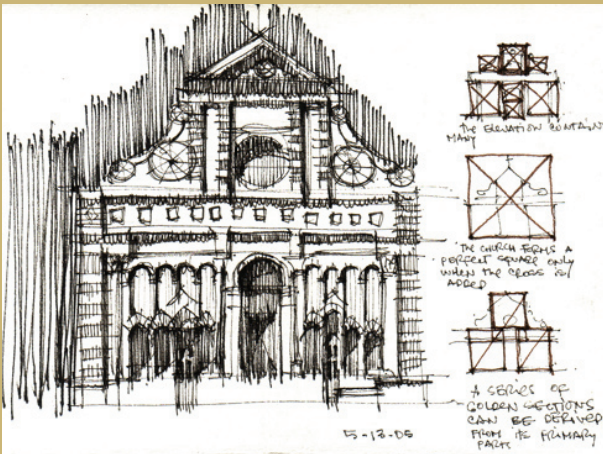 THE ELEVATION CONTAINS
MANY
THE CHURCH FORMS A
PERFECT SQUARE ONLY
WHEN THE CROSS IS
ADDED
A SERIES OF
GOLDEN SECTIONS
CAN BE DERIVED
FROM ITS PRIMARY
PARTS
5-13-05